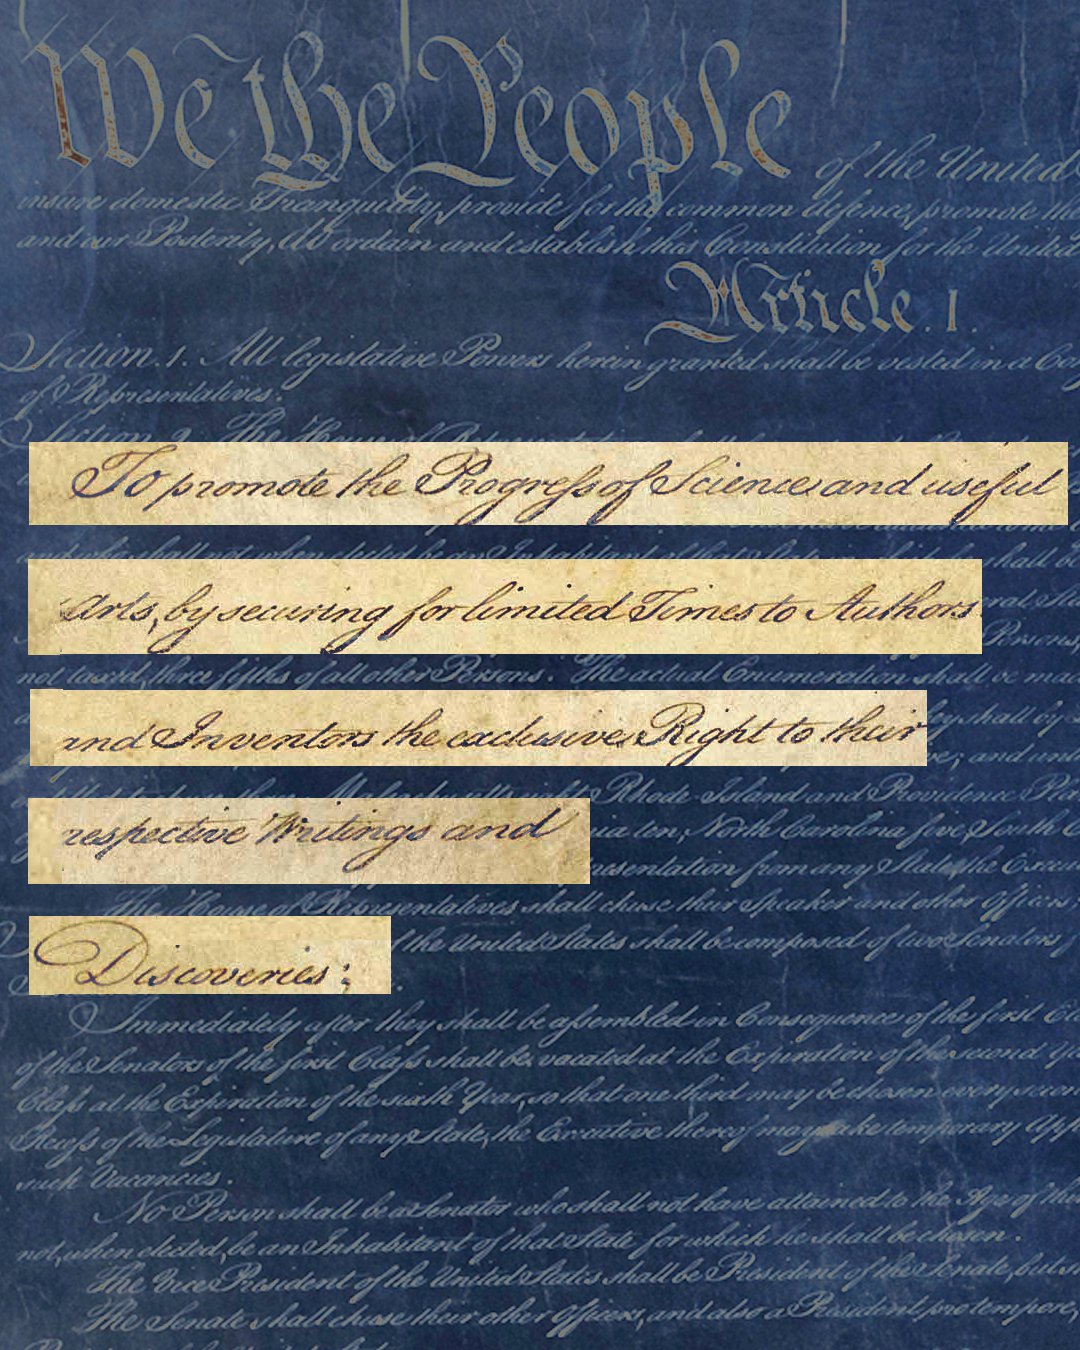 We the People of the United
insure domestic Tranquility, provide for the common defence, promote the
and our Posterity, do ordain and establish this Constitution for the United
Article. I.
Section. 1. All legislative Powers herein granted shall be vested in a Co
of Representatives.
Section. 2. The House of
To promote the Progress of Science and useful
Arts, by securing for limited Times to Authors
and Inventors the exclusive Right to their
not taxed, three fifths of all other Persons. The actual Enumeration shall be ma
respective Writings and
Rhode Island and Providence
North Carolina five, South
resentation from any State, the Execu
The House of Representatives shall chuse their Speaker and other Officers
Discoveries;
the United States shall be composed of two Senators,
Immediately after they shall be assembled in Consequence of the first Ele
of the Senators of the first Class shall be vacated at the Expiration of the second Ye
Class at the Expiration of the sixth Year, so that one third may be chosen every secon
Recess of the Legislature of any State, the Executive thereof may make temporary App
such Vacancies.
No Person shall be a Senator who shall not have attained to the Age of thi
not, when elected, be an Inhabitant of that State for which he shall be chosen.
The Vice President of the United States shall be President of the Senate, but
The Senate shall chuse their other Officers, and also a President pro tempore,